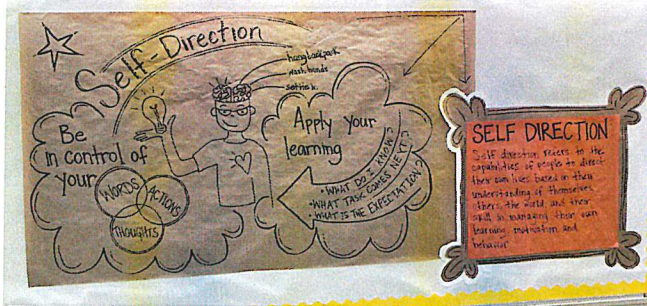 Self-Direction
hang backpack
wash hands
Be
in control of
your
WORDS
ACTIONS
THOUGHTS
Apply your
learning
• WHAT DO I KNOW?
• WHAT TASK COMES NEXT?
• WHAT IS THE EXPECTATION?
SELF DIRECTION
Self direction refers to the
capabilities of people to direct
their own lives based on their
understanding of themselves,
others, the world, and their
skill in managing their own
learning, motivation and
behavior